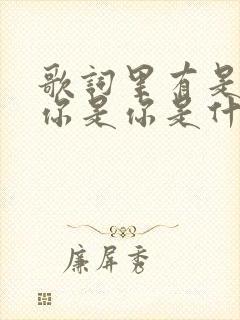 歌詞里有是
你是你是什
廉屏秀